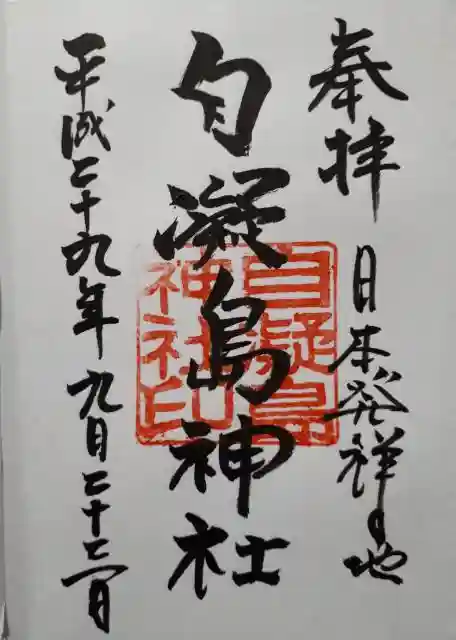 奉拝 日本発祥の地
自凝島神社
平成二十九年九月二十七日
自凝島
神社印